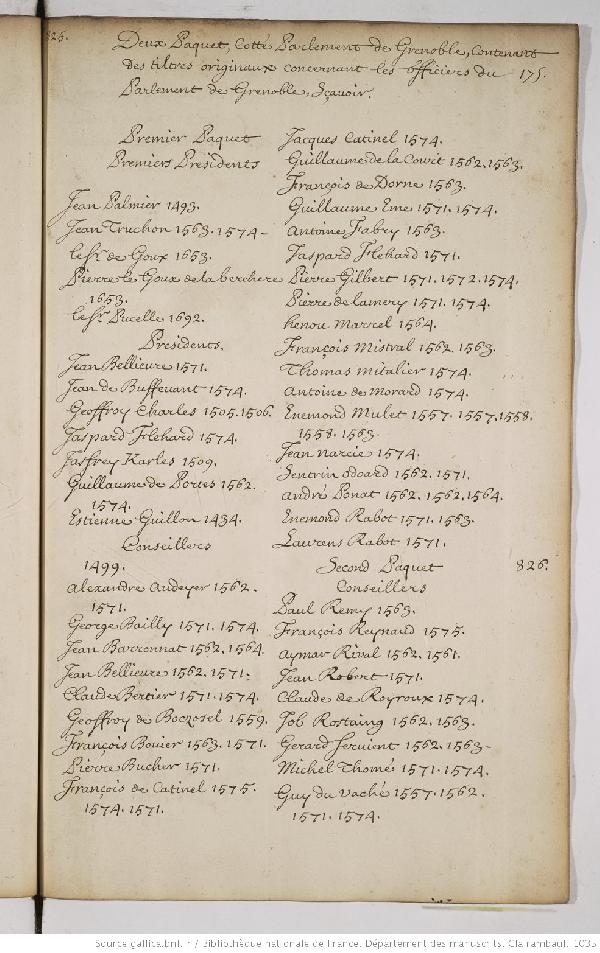 825.
Deux Paquet, Cotté Parlement de Grenoble, Contenant
des tiltres originaux concernant les officiers du 175.
Parlement de Grenoble, Sçavoir.
Premier Paquet
Premiers Presidents
Jean Palmier 1493.
Jean Truchon 1563. 1574
le Sr. de Goux 1653.
Pierre le Goux de la berchere
1653.
le Sr. Pucelle 1692.
Presidents.
Jean Bellieure 1571.
Jean de Buffeuant 1574.
Geoffroy Charles 1505. 1506.
Jaspard Flehard 1574.
Jasfrey Karles 1509.
Guillaume de Portes 1562.
1574.
Estienne Guillon 1434.
Conseillers
1499.
Alexandre Audeyer 1562.
1571.
George Bailly 1571. 1574.
Jean Barronnat 1562. 1564.
Jean Bellieure 1562. 1571.
Claude Bertier 1571. 1574.
Geoffroy de Boczozel 1559.
François Bouier 1563. 1571.
Pierre Bucher 1571.
François de Catinel 1575.
1574. 1571.
Jacques Catinel 1574.
Guillaume de la Cowit 1562. 1563.
François de Dorne 1563.
Guillaume Eme 1571. 1574.
Antoine Fabry 1563.
Jaspard Flehard 1571.
Pierre Gilbert 1571. 1572. 1574.
Pierre de lamery 1571. 1574.
henou Marcel 1564.
François Mistral 1562. 1563.
Thomas mitalier 1574.
Antoine de Morard 1574.
Enemond Mulet 1557. 1557. 1558.
1558. 1563.
Jean Narcie 1574.
Sentrin odoard 1562. 1571.
André Ponat 1562. 1562. 1564.
Enemond Rabot 1571. 1563.
Laurens Rabot 1571.
Second Paquet 826.
Conseillers
Paul Remy 1563.
François Reynaud 1575.
Aymar Rival 1562. 1561.
Jean Robert 1571.
Claude de Royroux 1574.
Job Rostaing 1562. 1563.
Gerard Servient 1562. 1563
Michel Thomé 1571. 1574.
Guy du Vaché 1557. 1562.
1571. 1574.
Source gallica.bnf.fr / Bibliothèque nationale de France. Département des manuscrits. Clairambault 1035